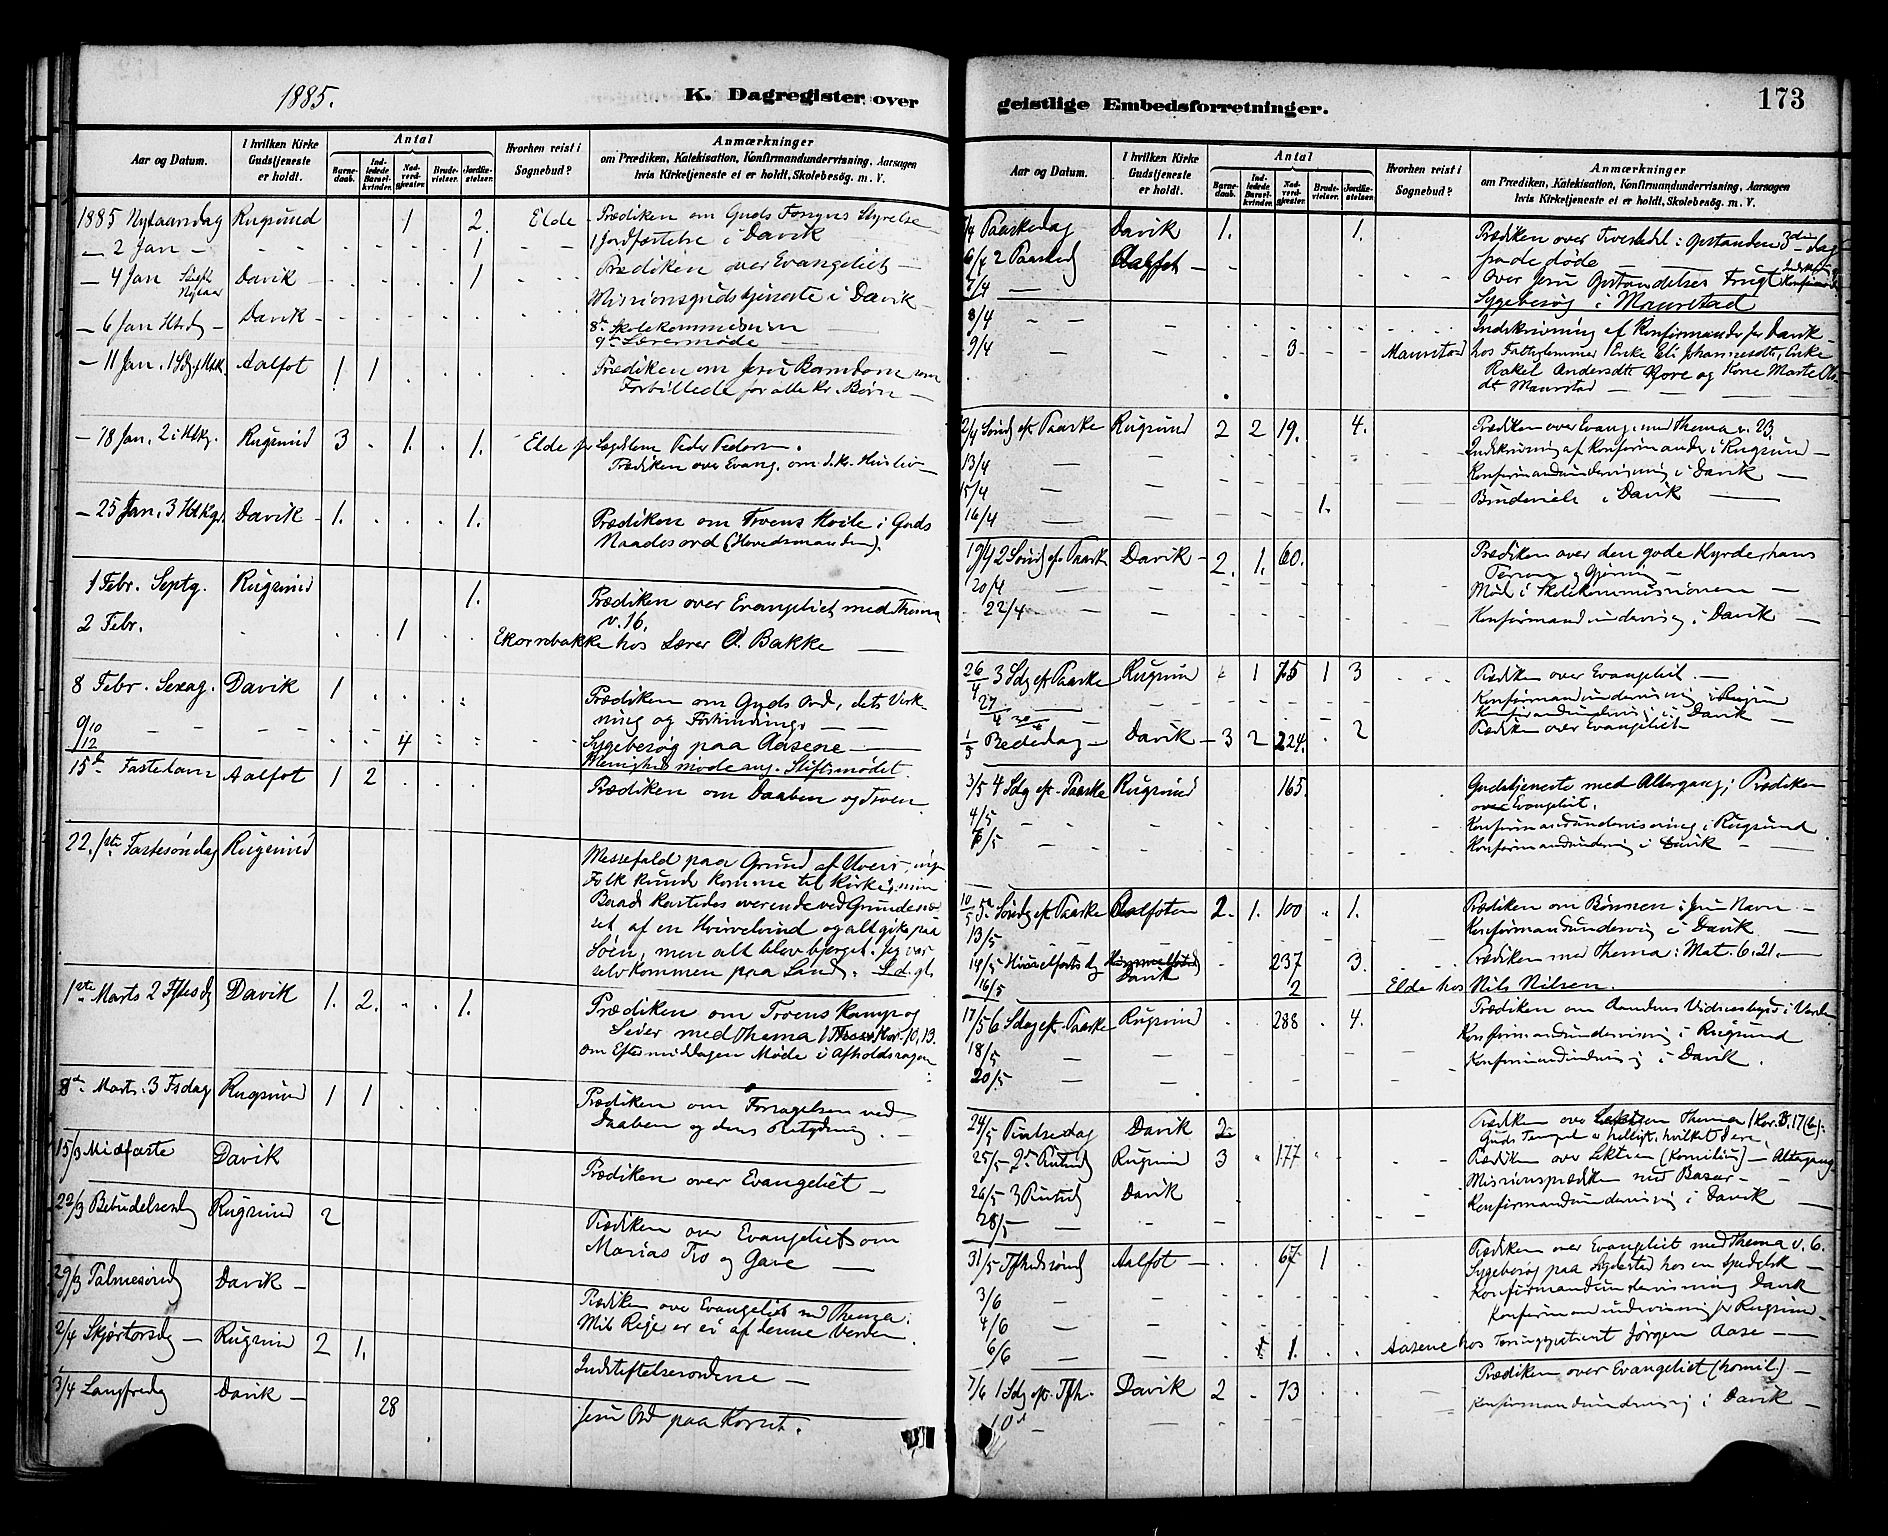 1885.
K. Dagregister over
Aar og Datum.
I hvilken Kirke Gudstjeneste er holdt.
Antal
Barnedaab.
Indledede Barselkvinder.
Nadverdgjester.
Brudevielser.
Jordfæstelser.
Hvorhen reist i Sognebud?
Anmærkninger
om Prædiken, Katekisation, Konfirmandundervisning, Aarsagen
hvis Kirketjeneste ei er holdt, Skolebesøg. m. V.
1885 Nytaarsdag Rugsund 1 2. Elde Prædiken om Guds Forsyns Styrelse
— 2 Jan — 1 1 Jordfæstelse i Davik
— 4 Jan Davik 1 Prædiken over Evangeliet —
Missionsgudstjeneste i Davik
— 6 Jan Davik 8de Skolekommission
9de Lærermøde —
— 11 Jan. Aalfot 1 1 Prædiken om Jesu Barndom som
Forbillede for alle kr. Børn —
— 18 Jan. 2 i Rugsund 3 1. 1. Elde for Peder Pedersen.
Prædiken over Evang. om d. kr. Husliv —
— 25 Jan. 3 Davik 1. 1. Prædiken om Troens Hvile i Guds
Naadesord (Høvedsmanden).
1 Febr. Septg. Rugsund 1. Prædiken over Evangeliet med Thema
v. 16.
2 Febr. 1 Ekornebakke hos Lærer O. Bakke —
8 Febr. Sexag. Davik 1 Prædiken om Guds Ord, dets Virk-
ning og Forhindring —
9/10 12 4 Sygebesøg paa Aasene —
Menighedsmøde ang. Stiftsmødet.
15de Fastelavn Aalfot 1 2 Prædiken om Daaben og Troen
22. 1ste Fastesøndag Rugsund
Messefald paa Grund af Uveir, ingen
Folk kunde komme til Kirke, min
Baad kastedes overende ved Grundenæs-
set af en Hvirvelvind og alt gik paa
Søen, men alt blev bjerget. Jeg var
selv kommen paa Land. S. d. gl.
1ste Marts 2 Davik 1. 2. 1. Prædiken om Troens Kamp og
Seier med Thema 1 Kor. 10, 13.
om Eftermiddagen Møde i Afholdssagen
8de Marts. 3 Fsdag Rugsund 1 1 Prædiken om Forsagelsen ved
Daaben og dens Betydning. —
15/3 Midfaste Davik Prædiken over Evangeliet —
22/3 Bebudelsesdg Rugsund 2 Prædiken over Evangeliet om
Marias Tro og Gave —
29/3 Palmesøndg Davik — Prædiken over Evangeliet md Thema:
Mit Rige er ei af denne Verden.
2/4 Skjærtorsdg — Rugsund 2 1. Indstiftelsesordene —
3/4 Langfredg Davik — 28 Jesu Ord paa Korset.
geistlige Embedsforretninger.
173
Aar og Datum.
I hvilken Kirke Gudstjeneste er holdt.
Antal
Barnedaab.
Indledede Barselkvinder.
Nadverdgjester.
Brudevielser.
Jordfæstelser.
Hvorhen reist i Sognebud?
Anmærkninger
om Prædiken, Katekisation, Konfirmandundervisning, Aarsagen
hvis Kirketjeneste ei er holdt, Skolebesøg. m. V.
Paaskedag Davik 1. 1. Prædiken over Opstanden 3die dag
fra de døde —
6/4 2 Paasked Aalfot — over Jesu Opstandelses Frugt
7/4 — Sygebesøg i Maurstad
8/4 — Indskrivning af Konfirmander for Davik —
9/4 — 3 Maurstad hos Enke Eli Johannesdt, Enke
Rakel Andersdt Nore og Kone Marte Ols-
dt Maurstad —
12/4 Sønd eft. Paaske Rugsund 2 2 19. 4. Prædiken over Evang. med Thema v. 23.
13/4 — Indskrivning af Konfirmander i Rugsund —
15/4 — Konfirmandundervisning i Davik —
16/4 — 1. Brudeviels i Davik —
19/4 2 Sønd eft. Paaske Davik — 2. 1. 60. Prædiken over den gode Hyrde, hans
Person og Gjerning —
20/4 — Møde i Skolekommissionen —
22/4 — Konfirmandundervisng i Davik —
26/4 3 Sdg eft. Paaske Rugsund 1 75 1 3 Prædiken over Evangeliet. —
27/4 — Konfirmandundervisning i Rugsund
30/4 Konfirmandundervisng i Davik —
1/5 Bededag — Davik — 3 2 224. 2 Prædiken over Evangeliet
3/5 4 Sdg eft. Paaske Rugsund 165. Gudstjeneste med Altergang; Prædiken
over Evangeliet.
4/5 — Konfirmandundervisning i Rugsund
6/5 — Konfirmandundervisng i Davik —
10/5 5te Søndg eft. Paaske Aalfoten 2. 1. 100 1. Prædiken om Bønnen i Jesu Navn —
13/5 — Konfirmandundervisg i Davik —
14/5 Himmelfartsdg Davik 237 3. Prædiken med Thema: Mat. 6. 21. —
16/5 2 Elde hos Nils Nilsen.
17/5 6 Sdag eft. Paaske Rugsund 288 4. Prædiken om Aandens Vidnesbyrd i Verden
18/5 — Konfirmandundervisng i Rugsund
20/5 — Konfirmandundervisng i Davik.
24/5 Pintsedag Davik 2 Prædiken over Lektien Thema 1 Kor. 3. 17 (b):
Guds Tempel er helligt, hvilket I ere.
25/5 2den Pintsed Rugsund 3 177 Prædiken over Lektien (Kornelius) — Altergang
26/5 3 Pintsd Davik Missionsprædiken med Basar —
28/5 — Konfirmandundervisng i Davik —
31/5 Aalfot — 67 1 Prædiken over Evangeliet med Thema v. 6.
Sygebesøg paa hos en spedalsk —
3/6 — Konfirmandundervisning Davik
4/6 — Konfirmandundervisning for Rugsund —
6/6 — 1. Aasene hos Jørgen Aase —
7/6 1 Sdg eft. Davik 2 73 Prædiken over Evangeliet (homil.) —
10de — Konfirmandundervisng i Davik —